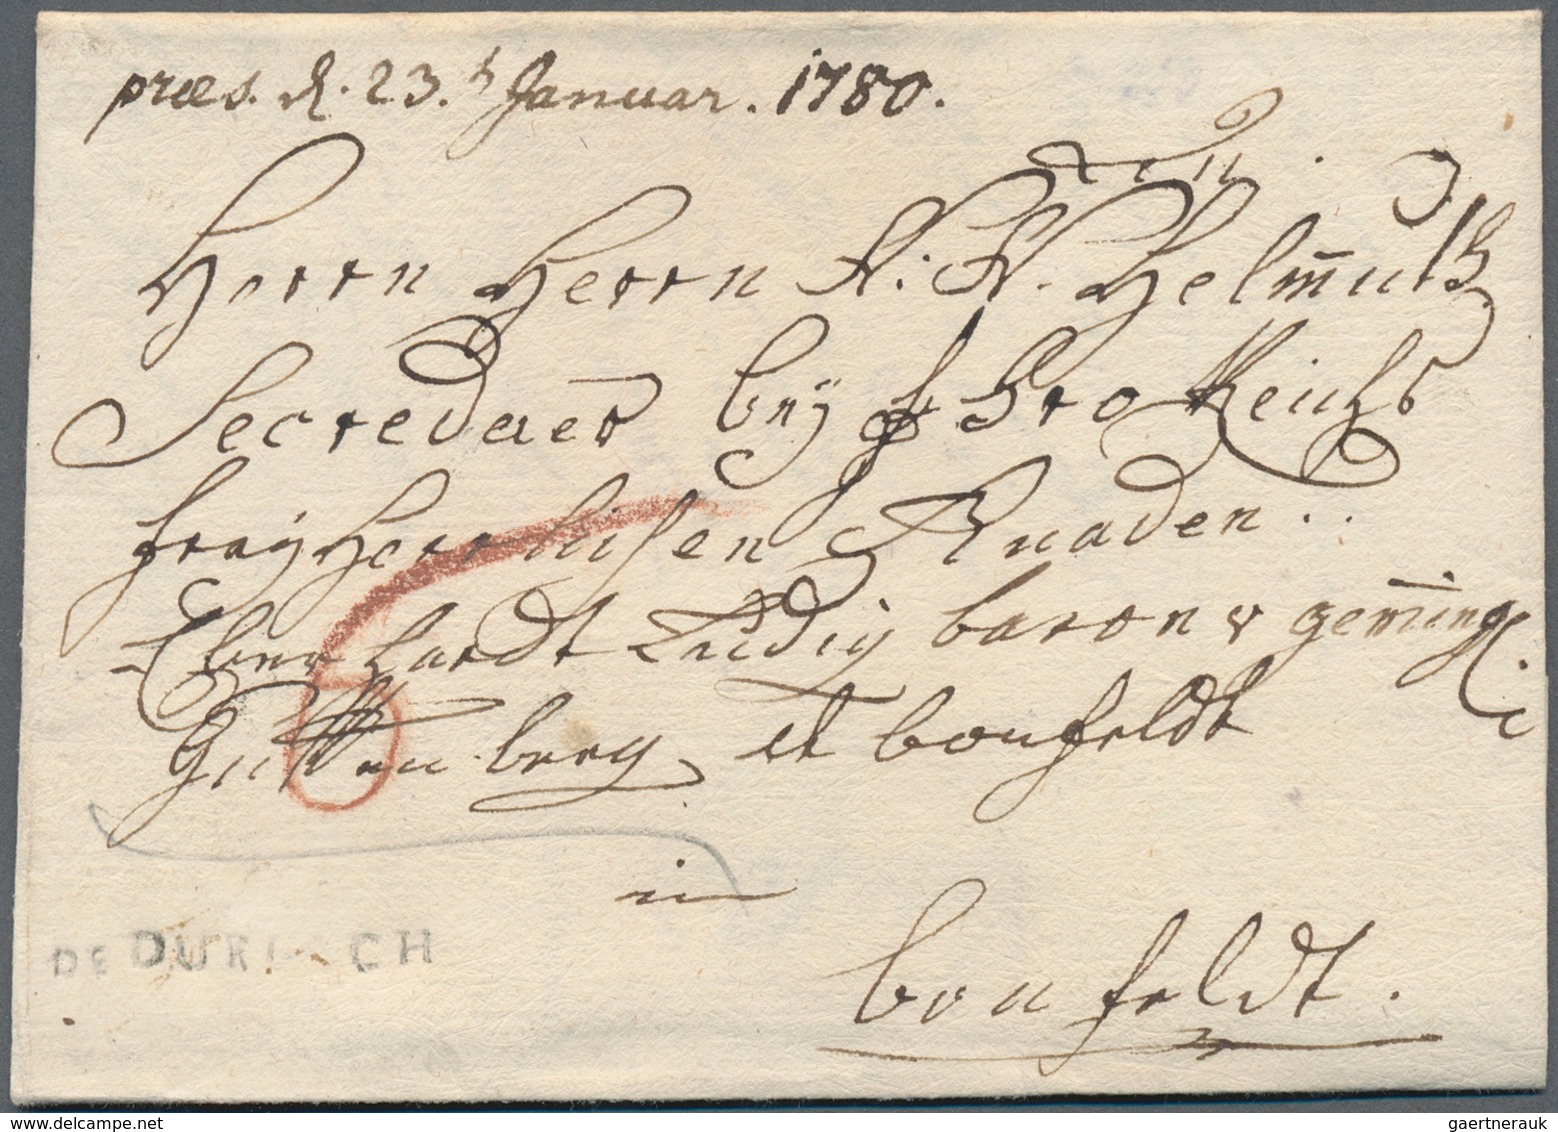 præs. d. 23.t Januar. 1780.
Herrn Herrn N: N. Helm̄uth
Secredaer bey Hro Reichs
frey Herrlichen Gnaden..
Eberhardt Ludig baron v gem̄ing
Guttenberg et bonfeldt
in
bonfeldt.
DE DURLACH
delcampe.net
gaertnerauk